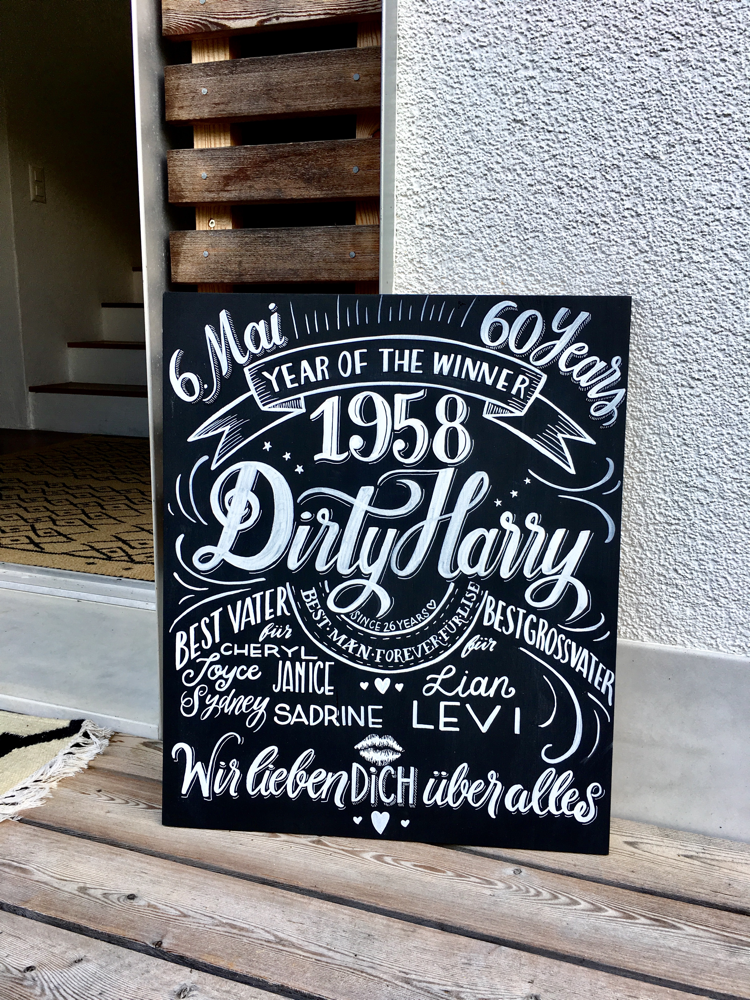 6. Mai
60 Years
YEAR OF THE WINNER
1958
Dirty Harry
SINCE 26 YEARS
BEST·MAN·FOREVER·FÜR LISE
BEST VATER
für
CHERYL
Joyce JANICE
Sydney SADRINE
BESTGROSSVATER
für
Lian
LEVI
Wir lieben DiCH über alles